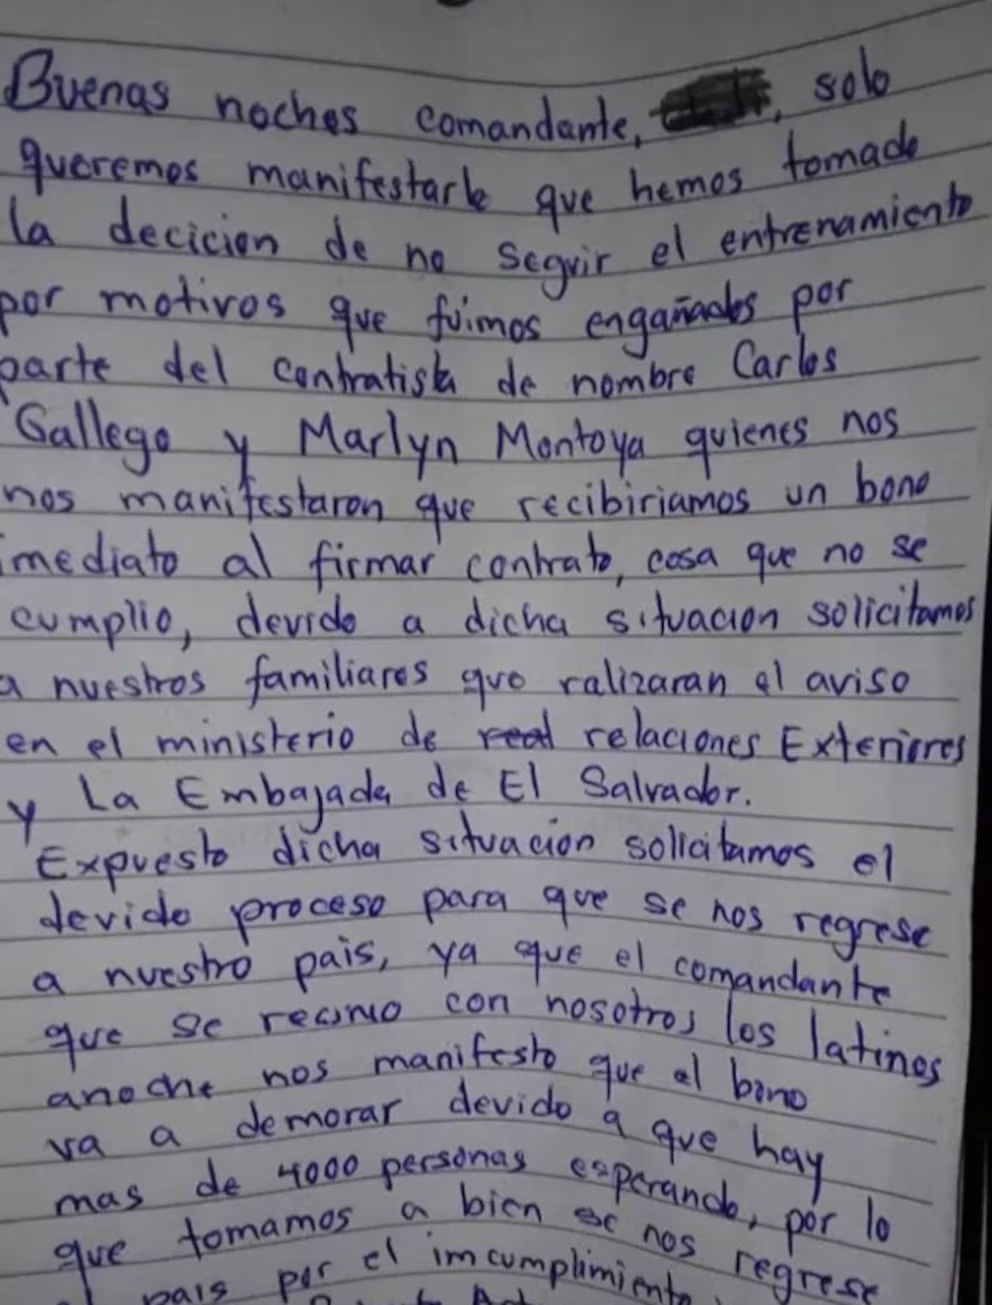 Buenas noches comandante, , solo
queremos manifestarle que hemos tomado
la decicion de no seguir el entrenamiento
por motivos que fuimos engañados por
parte del contratista de nombre Carlos
Gallego y Marlyn Montoya quienes nos
nos manifestaron que recibiriamos un bono
imediato al firmar contrato, cosa que no se
cumplio, devido a dicha situacion solicitamos
a nuestros familiares que ralizaran el aviso
en el ministerio de relaciones Exteriores
y La Embajada de El Salvador.
Expuesto dicha situacion solicitamos el
devido proceso para que se nos regrese
a nuestro pais, ya que el comandante
que se reunio con nosotros los latinos
anoche nos manifesto que el bono
va a demorar devido a que hay
mas de 4000 personas esperando, por lo
que tomamos a bien se nos regrese
pais por el imcumplimiento